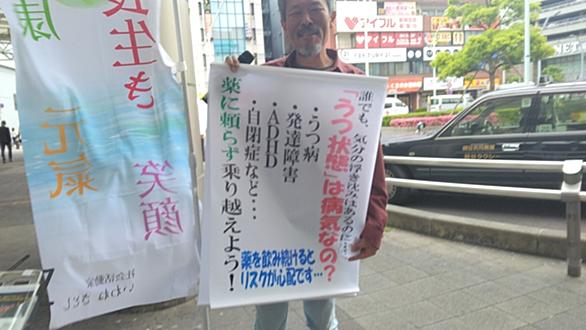 誰でも、気分の浮き沈みはあるのに…
「うつ状態」は病気なの？
・うつ病
・発達障害
・ADHD
・自閉症など・・・
薬に頼らず乗り越えよう！
薬を飲み続けると
リスクが心配です…
長生き
笑顔
健康
元氣
社会活動家
アイフル